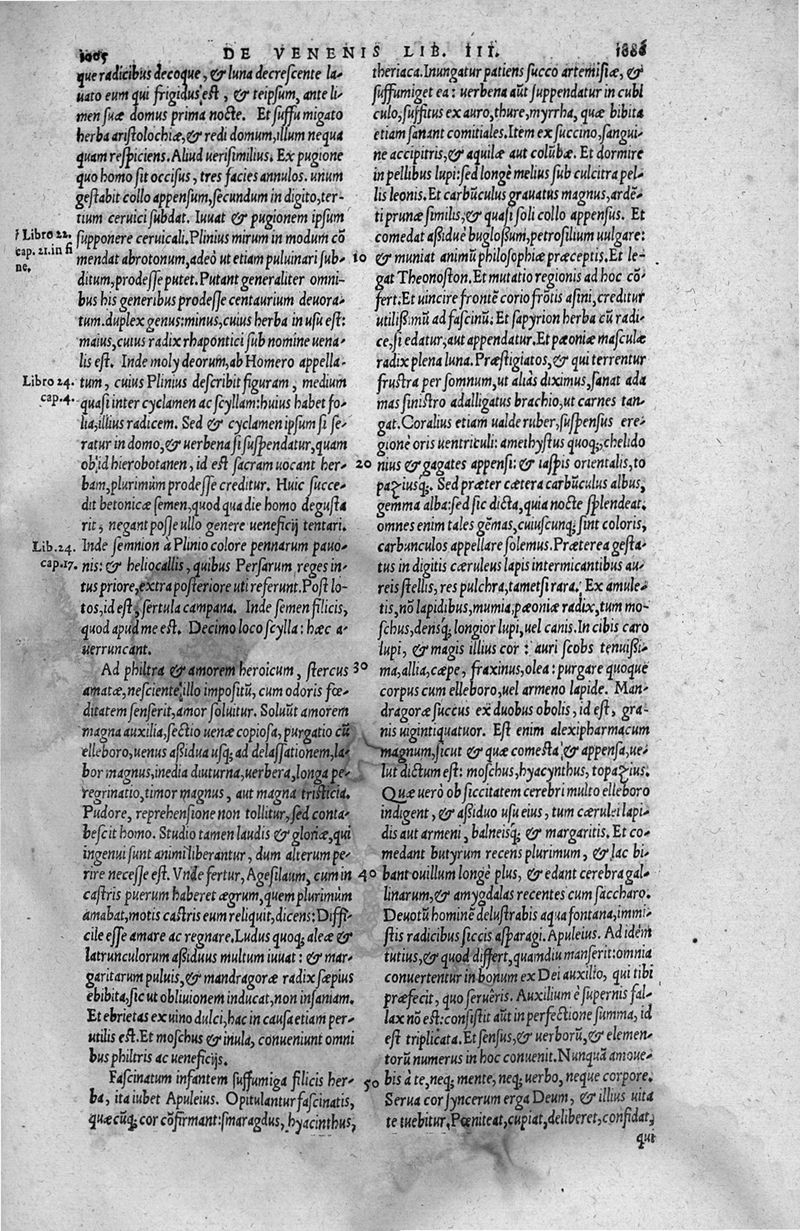 1085 DE VENENIS LIB. III. 1086
que radicibus decoque, & luna decrescente la-
uato eum qui frigidus est, & teipsum, ante li-
men suæ domus prima nocte. Et suffumigato
herba aristolochiæ, & redi domum, illum nequa
quam respiciens. Aliud uerisimilius. Ex pugione
quo homo sit occisus, tres facies annulos. unum
gestabit collo appensum, secundum in digito, ter-
tium ceruici subdat. Iuuat & pugionem ipsum
supponere ceruicali. Plinius mirum in modum cō
mendat abrotonum, adeò ut etiam puluinari sub-
ditum, prodesse putet. Putant generaliter omni-
bus his generibus prodesse centaurium deuora-
tum. duplex genus: minus, cuius herba in usu est:
maius, cuius radix rhapontici sub nomine uena-
lis est. Inde moly deorum, ab Homero appella-
tum, cuius Plinius describit figuram, medium
quasi inter cyclamen ac scyllam: huius habet fo-
lia, illius radicem. Sed & cyclamen ipsum si se-
ratur in domo, & uerbena si suspendatur, quam
ob id hierobotanen, id est sacram uocant her-
bam, plurimùm prodesse creditur. Huic succe-
dit betonicæ semen, quod qua die homo degusta
rit, negant posse ullo genere ueneficij tentari.
Inde semnion à Plinio colore pennarum pauo-
nis: & heliocallis, quibus Persarum reges in-
tus priore, extra posteriore uti referunt. Post lo-
tos, id est, sertula campana. Inde semen filicis,
quod apud me est. Decimo loco scylla: hæc a-
uerruncant.
Ad philtra & amorem heroicum, stercus
amatæ, nesciente illo impositū, cum odoris fœ-
ditatem senserit, amor soluitur. Soluūt amorem
magna auxilia, sectio uenæ copiosa, purgatio cū
elleboro, uenus aßidua usq; ad delassationem, la-
bor magnus, inedia diuturna, uerbera, longa pe-
regrinatio, timor magnus, aut magna tristicia.
Pudore, reprehensione non tollitur, sed conta-
bescit homo. Studio tamen laudis & gloriæ, qui
ingenui sunt animi liberantur, dum alterum pe-
rire necesse est. Vnde fertur, Agesilaum, cum in
castris puerum haberet ægrum, quem plurimùm
amabat, motis castris eum reliquit, dicens: Diffi-
cile esse amare ac regnare. Ludus quoq; aleæ &
latrunculorum aßiduus multum iuuat: & mar-
garitarum puluis, & mandragoræ radix sæpius
ebibita, sic ut obliuionem inducat, non insaniam.
Et ebrietas ex uino dulci, hac in causa etiam per-
utilis est. Et moschus & inula, conueniunt omni
bus philtris ac ueneficijs.
Fascinatum infantem suffumiga filicis her-
ba, ita iubet Apuleius. Opitulantur fascinatis,
quæcūq; cor cōfirmant: smaragdus, hyacinthus,
ꝉ Libro 22.
cap. 21. in fi
ne.
Libro 24.
cap. 4.
Lib. 24.
cap. 17.
10
20
30
40
50
theriaca. Inungatur patiens succo artemisiæ, &
suffumiget ea: uerbena aūt suppendatur in cubi
culo, suffitus ex auro, thure, myrrha, quæ bibita
etiam sanant comitiales. Item ex succino, sangui-
ne accipitris, & aquilæ aut colūbæ. Et dormire
in pellibus lupi: sed longè melius sub culcitra pel-
lis leonis. Et carbūculus grauatus magnus, ardē-
ti prunæ similis, & quasi soli collo appensus. Et
comedat aßiduè buglossum, petrosilium uulgare:
& muniat animū philosophiæ præceptis. Et le-
gat Theonoston. Et mutatio regionis ad hoc cō-
fert. Et uincire frontē corio frōtis asini, creditur
utiliß. mū ad fascinū: Et sapyrion herba cū radi-
ce, si edatur, aut appendatur. Et pæoniæ masculæ
radix plena luna. Præstigiatos, & qui terrentur
frustra per somnum, ut aliàs diximus, sanat ada
mas sinistro adalligatus brachio, ut carnes tan-
gat. Coralius etiam ualde ruber, suspensus ere-
gionè oris uentriculi: amethystus quoq;, chelido
nius & gagates appensi: & iaspis orientalis, to
paziusq;. Sed præter cætera carbūculus albus,
gemma alba: sed sic dicta, quia nocte splendeat.
omnes enim tales gēmas, cuiuscunq; sint coloris,
carbunculos appellare solemus. Præterea gesta-
tus in digitis cæruleus lapis intermicantibus au-
reis stellis, res pulchra, tametsi rara. Ex amule-
tis, nō lapidibus, mumia, pæoniæ radix, tum mo-
schus, densq; longior lupi, uel canis. In cibis caro
lupi, & magis illius cor: auri scobs tenuißi-
ma, allia, cæpe, fraxinus, olea: purgare quoque
corpus cum elleboro, uel armeno lapide. Man-
dragoræ succus ex duobus obolis, id est, gra-
nis uigintiquatuor. Est enim alexipharmacum
magnum, sicut & quæ comesta & appensa, ue-
lut dictum est: moschus, hyacynthus, topazius.
Quæ uerò ob siccitatem cerebri multo elleboro
indigent, & aßiduo usu eius, tum cærulei lapi-
dis aut armeni, balneisq; & margaritis. Et co-
medant butyrum recens plurimum, & lac bi-
bant ouillum longè plus, & edant cerebra gal-
linarum, & amygdalas recentes cum saccharo.
Deuotū hominē delustrabis aqua fontana, immi-
stis radicibus siccis asparagi. Apuleius. Ad idēm
tutius, & quod differt, quamdiu manserit: omnia
conuertentur in bonum ex Dei auxilio, qui tibi
præfecit, quo serueris. Auxilium è supernis fal-
lax nō est: consistit aūt in perfectione summa, id
est triplicata. Et sensus, & uerborū, & elemen-
torū numerus in hoc conuenit. Nunquā amoue-
bis à te, neq; mente, neq; uerbo, neque corpore.
Serua cor syncerum erga Deum, & illius uita
te tuebitur. Pœniteat, cupiat, deliberet, confidat,
qui